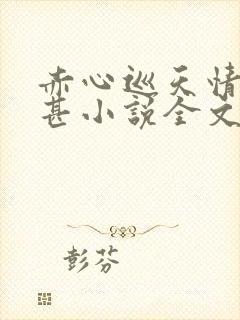 赤心巡天情
甚小说全文
彭芬